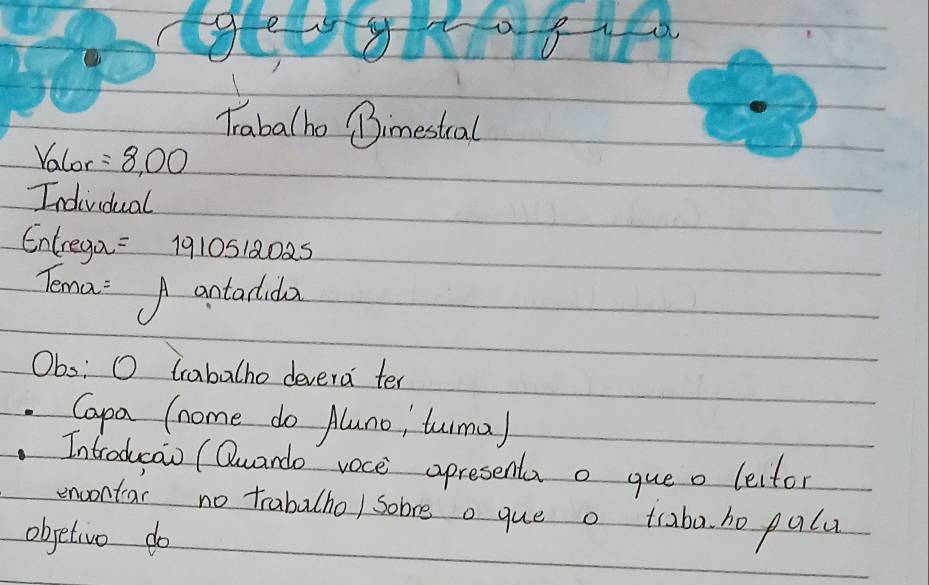 GEOGRAFIA
geografia
Trabalho Bimestral
Valor = 8,00
Individual
Entrega = 19/05/2025
Tema = A antartida
Obs: O trabalho deverá ter
• Capa (nome do Aluno, turma)
• Introdução (Quando você apresenta o que o leitor
encontrar no trabalho) Sobre o que o trabalho fala
objetivo do